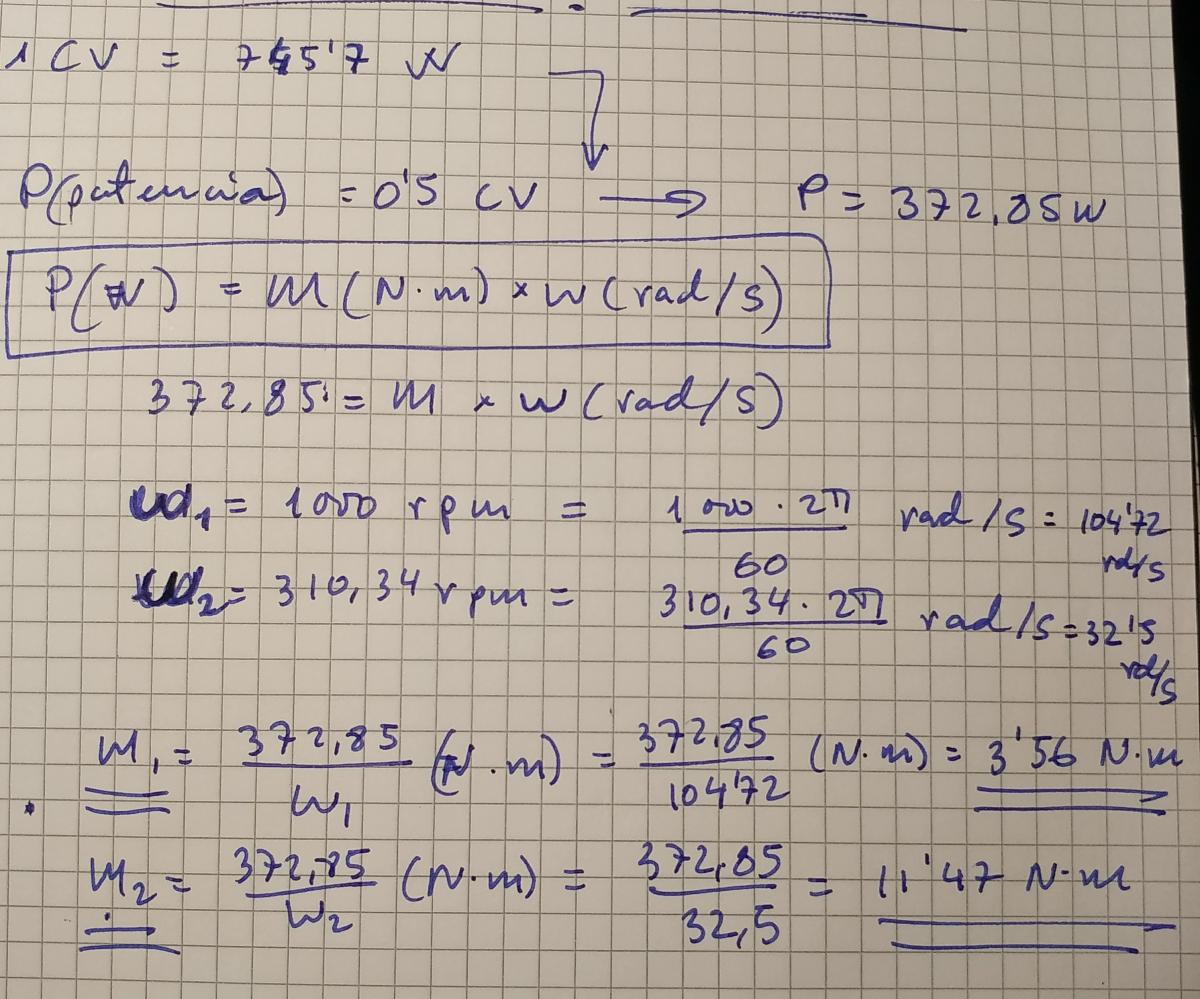 1 CV = 745'7 W
P(potencia) = 0'5 CV → P = 372,85 W
P(W) = M (N·m) × w (rad/s)
372,85 = M × w (rad/s)
ω1 = 1000 rpm = 1000 · 2π / 60 rad/s = 104'72 rd/s
ω2 = 310,34 rpm = 310,34 · 2π / 60 rad/s = 32'5 rd/s
M1 = 372,85 / W1 (N·m) = 372,85 / 104'72 (N·m) = 3'56 N·m
M2 = 372,85 / W2 (N·m) = 372,85 / 32,5 = 11'47 N·m